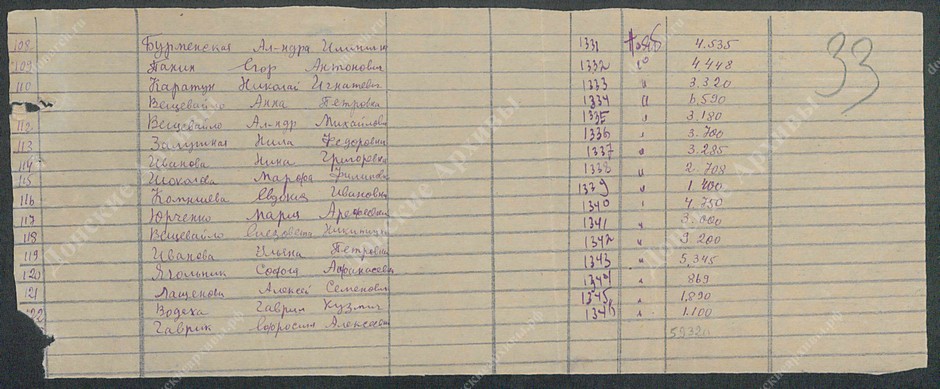 33
108 Бурменская Ал-ндра Илинична 1331 Нояб 4.535
109 Панин Егор Антонович 1332 " 4 448
110 Каратун Николай Игнатевич 1333 " 3.320
Вещевайло Анна Петровна 1334 " 6.590
112 Вещевайло Ал-ндр Михайлови 1335 " 3.180
113 Нила Федоровна 1336 " 3.700
114 Иванова Нина Григоровна 1337 " 3.285
115 Марфа Филипов 1338 " 2.708
116 Евдокия Ивановна 1339 " 1.400
117 Юрченко Мария Арефеевна 1340 " 4.750
118 Вещевайло Никитична 1341 " 3.000
119 Иванова Ульяна Петровна 1342 " 9 200
120 Ягольник Софья Афанасевна 1343 " 5.345
121 Лащенова Алексей Семенович 1344 " 869
122 Водека Гаврил Кузмич 1345 " 1.890
Гаврик Ефросиня Алексеевн 1346 " 1.100
59320